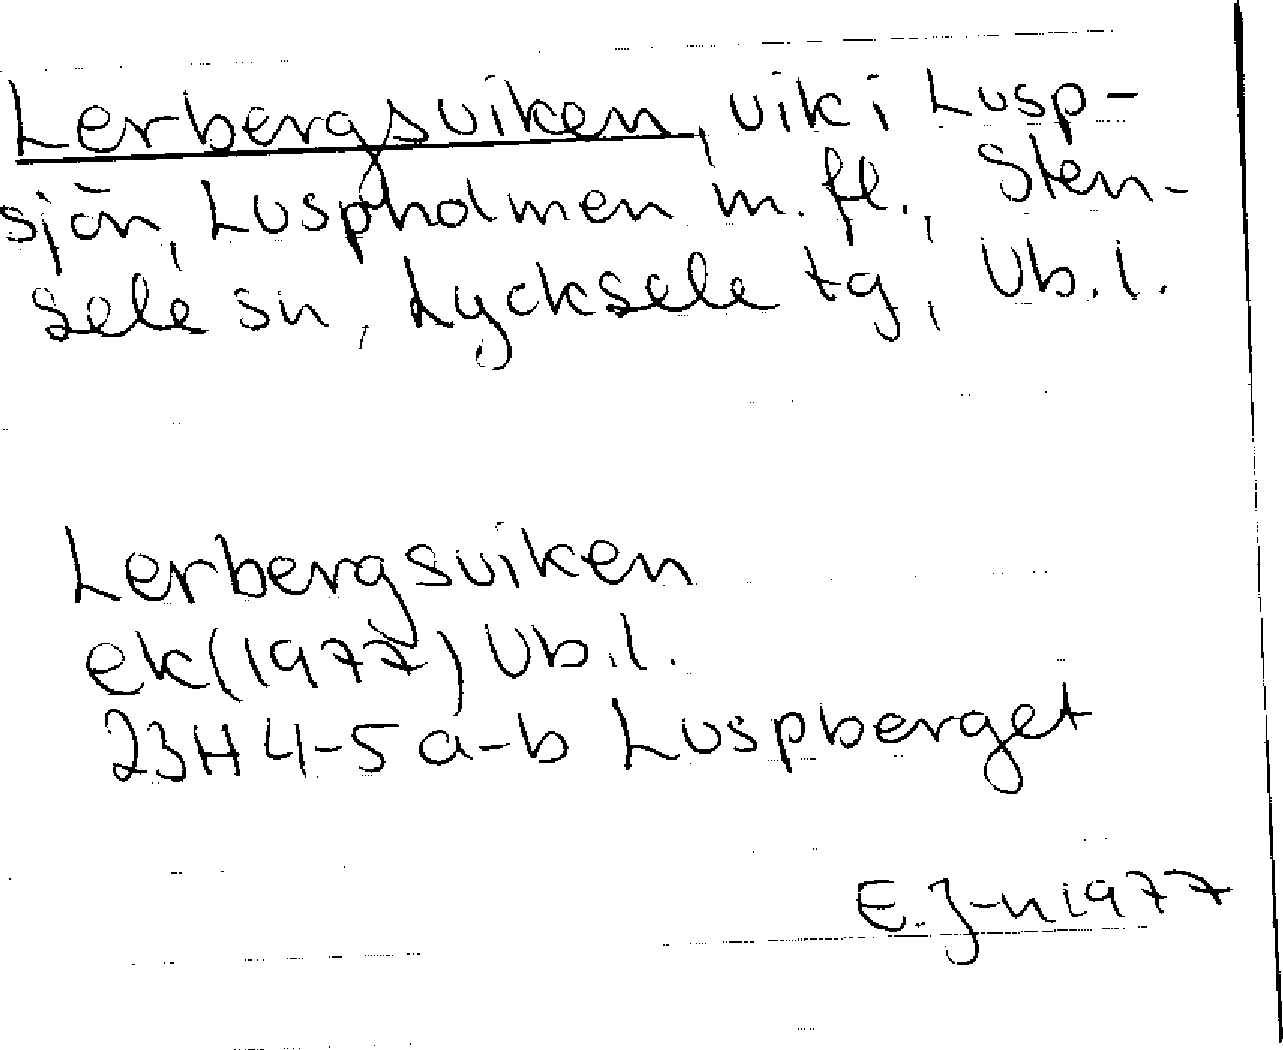 Lerbergsviken, vik i Lusp-
sjön, Luspholmen m.fl., Sten-
sele sn, Lycksele tg, Vb.l.
Lerbergsviken
ek(1977) Vb.l.
23H 4-5 a-b Luspberget
E.J-n 1977